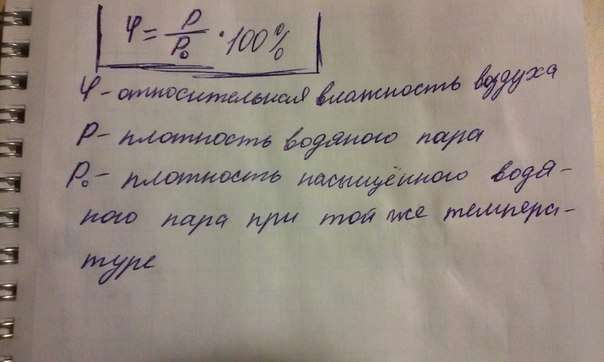 φ = P/P₀ · 100%
φ - относительная влажность воздуха
P - плотность водяного пара
P₀ - плотность насыщенного водя-
ного пара при той же темпера-
туре